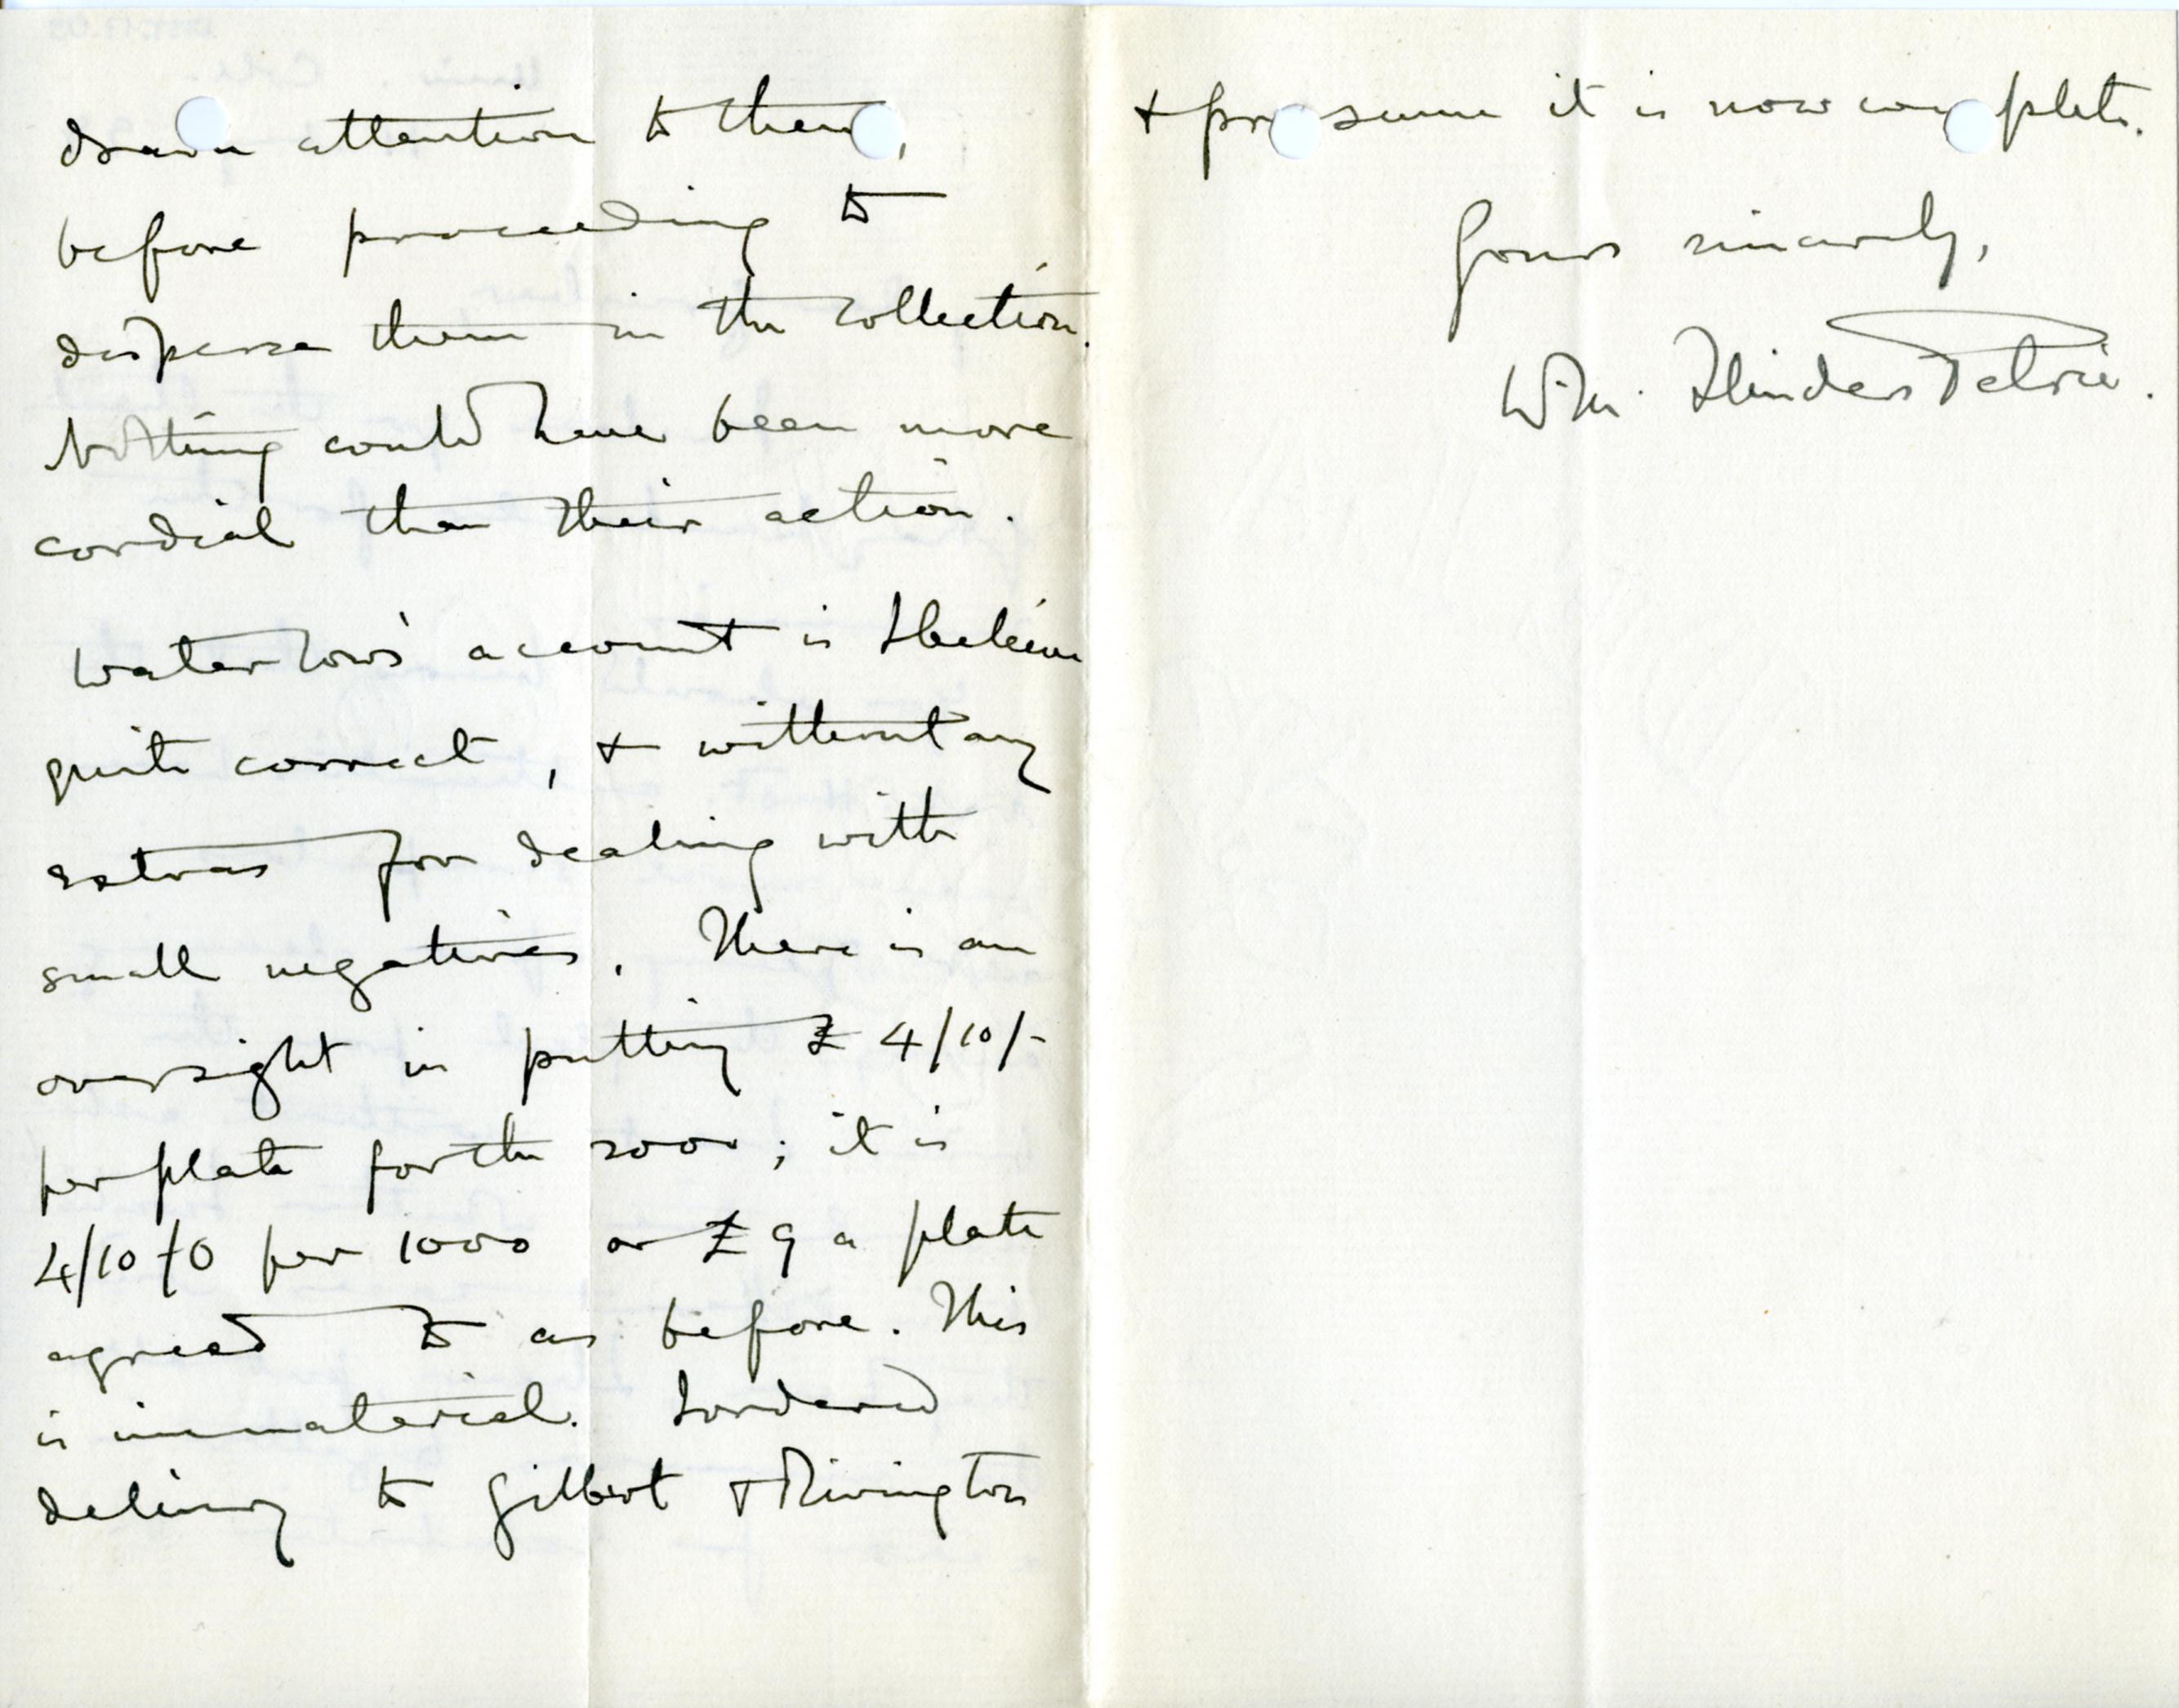 drawn attention to them,
before proceeding to
disperse them in the collection.
Nothing could have been more
cordial than their action.
Waterlows' account is I believe
quite correct, & without any
extras for dealing with
small negatives. There is an
oversight in putting £4/10/-
per plate for the 2000; it is
4/10/0 per 1000 or £9 a plate
agreed to as before. This
is immaterial. I ordered
delivery to Gilbert & Rivington
& presume it is now complete.
Yours sincerely,
W.M. Flinders Petrie.